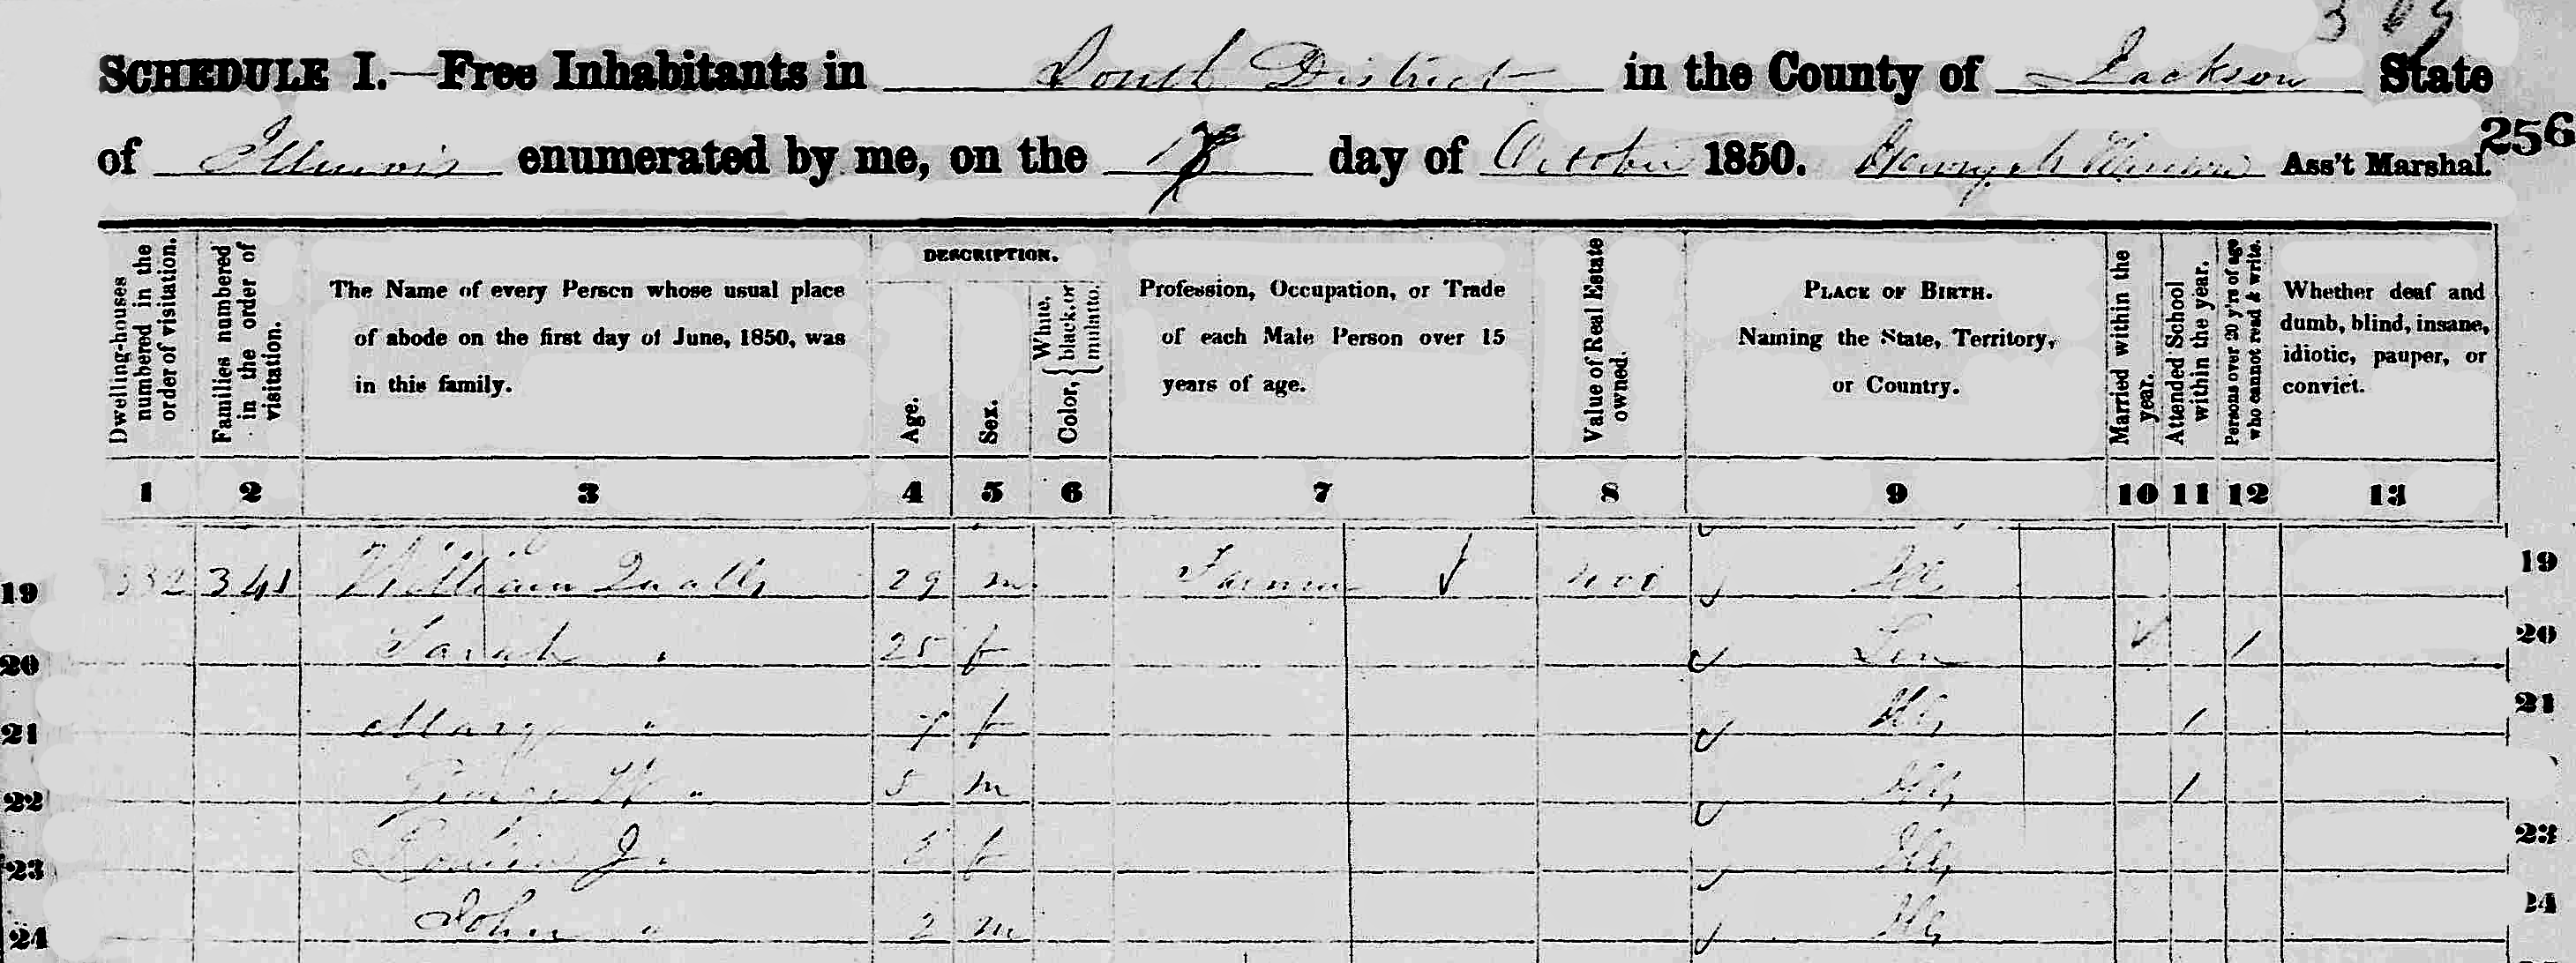 369
SCHEDULE I.—Free Inhabitants in South District in the County of Jackson State
of Illinois enumerated by me, on the day of October 1850. Henry Ass't Marshal.
256
Dwelling-houses numbered in the order of visitation.
Families numbered in the order of visitation.
The Name of every Person whose usual place
of abode on the first day of June, 1850, was
in this family.
DESCRIPTION.
Age.
Sex.
Color, { White, black, or mulatto.
Profession, Occupation, or Trade
of each Male Person over 15
years of age.
Value of Real Estate owned.
PLACE OF BIRTH.
Naming the State, Territory,
or Country.
Married within the year.
Attended School within the year.
Persons over 20 y'rs of age who cannot read & write.
Whether deaf and
dumb, blind, insane,
idiotic, pauper, or
convict.
1 2 3 4 5 6 7 8 9 10 11 12 13
19 332 341 William Qualls 29 m Farmer Ill 19
20 Sarah " 25 f Ten / 20
21 Mary " 7 f Ills / 21
22 George W " 5 m Ills /
23 J. " f Ills 23
24 John " 2 m Ills 24